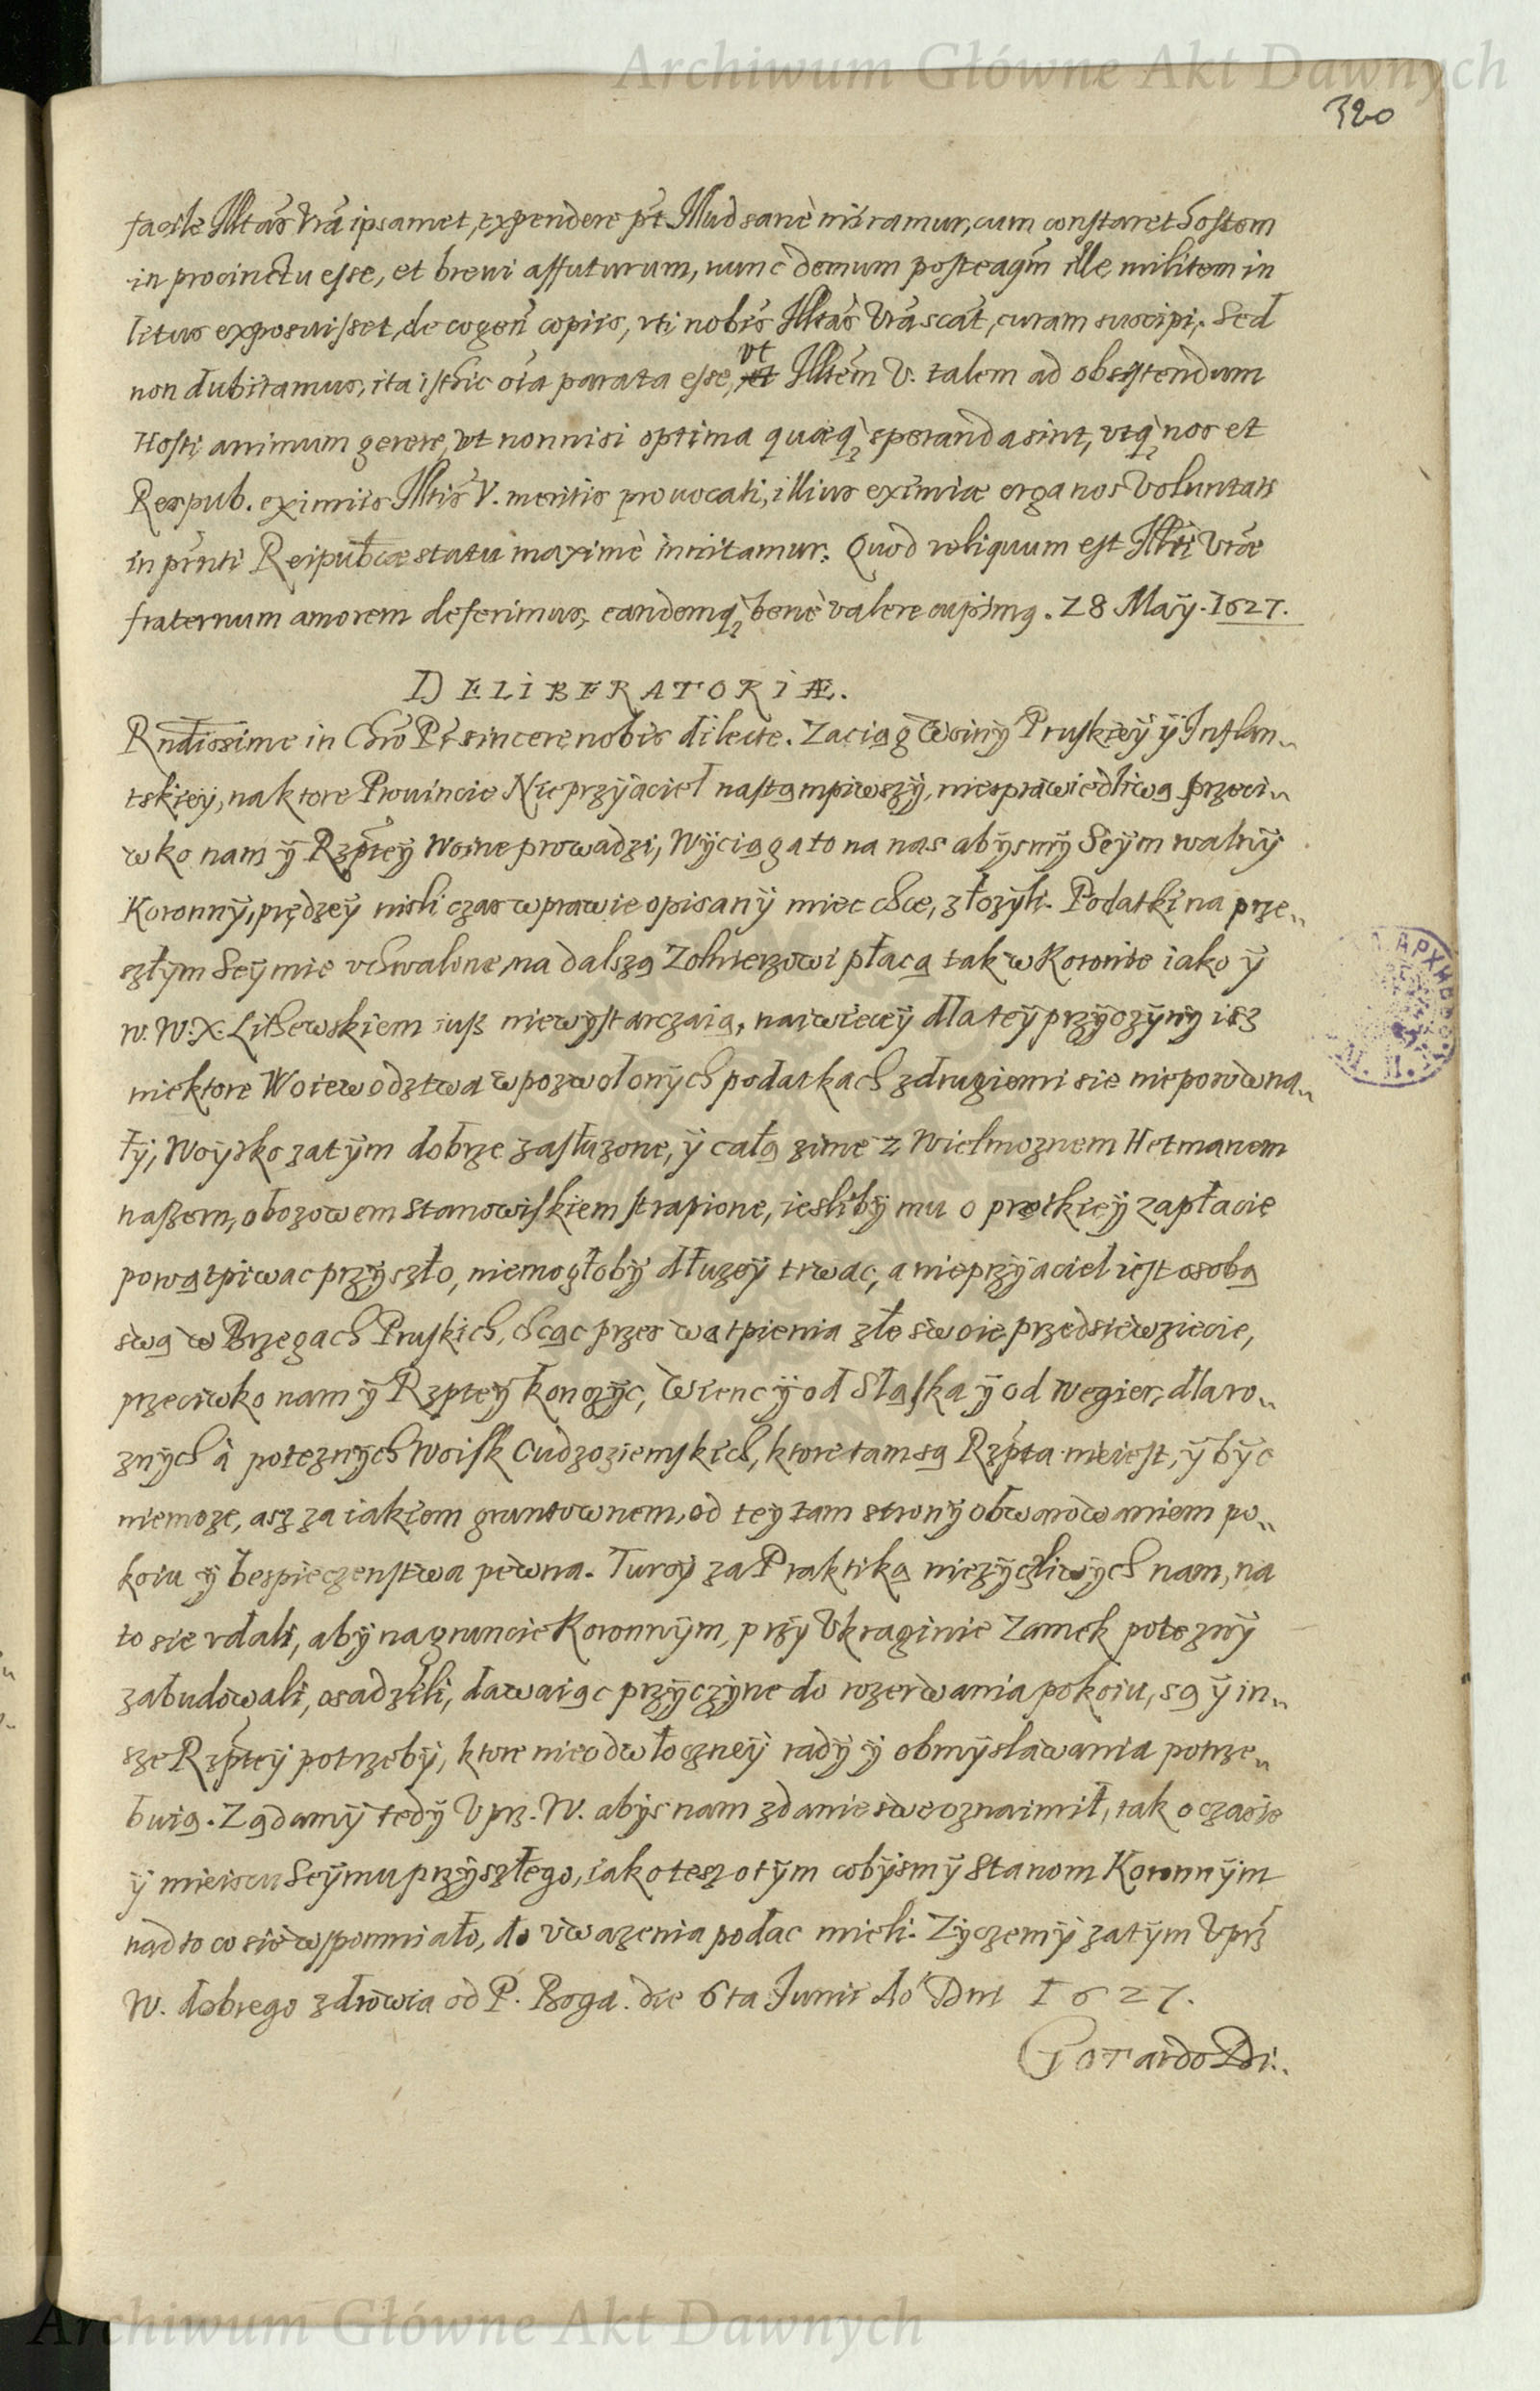 Archiwum Główne Akt Dawnych
320
facile Illtas Vra ipsamet, expendere pt. Illud sanè miramur, cum constaret hostem
in procinctu esse, et breui affuturum, nunc demum posteaqm ille militem in
litus exposuisset, de cogen copiis, vti nobis Illtas Vra scat, curam suscipi. Sed
non dubitamus, ita isthic oia parata esse, vt Illtem V. talem ad obsistendum
Hosti animum gerere, vt nonnisi optima quæq speranda sint, vtq nos et
Respub. eximiis Illtis V. meritis prouocati, illius eximiæ erga nos Voluntatis
in pnti Reipublcæ statu maximè inuitamur. Quod reliquum est Illti Vræ
fraternum amorem deferimus, eandemq benè valere cupimq. 28 Maÿ. 1627.
DELIBERATORIÆ.
Rndissime in Chro Pr sincere nobis dilecte. Zaciąg Woinÿ Pruskieÿ ÿ Inflan„
tskieÿ, na ktore Prouincie Nieprzÿiaciel nastąmpiwszÿ, niesprawiedliwą przeci„
wko nam ÿ Rzpteÿ woine prowadzi, Wÿciąga to na nas abÿsmÿ Seÿm walnÿ
Koronnÿ, prędzeÿ nisli czas w prawie opisanÿ miec chce, złozÿli. Podatki na prze„
szłÿm Seÿmie vchwalone, na dalszą Zolnierzowi płacą tak w Koronie iako ÿ
w. W. X. Lithewskiem iusz niewÿstarczaią, naiwieceÿ dla teÿ przÿczÿnÿ isz
niektore Woiewodztwa w pozwolonÿch podatkach z drugiemi sie nieporowna„
łÿ, Woÿsko zatÿm dobrze zasłuzone, ÿ całą zime z Wielmoznem Hetmanem
naszem, obozowem stanowiskiem strapione, iesliby mu o prętkieÿ zapłacie
powątpiwac przÿszło, niemogłobÿ dłuzeÿ trwac, a nieprzÿiaciel iest osobą
swą w Brzegach Pruskich, chcąc przes wątpienia złe swoie przedsiewziecie,
przeciwko nam ÿ Rzpteÿ konczÿc, Wienc ÿ od Sląska ÿ od Wegier, dla ro„
znÿch à poteznÿch Woisk Cudzoziemskich, ktore tam są Rzpta nieiest, ÿ bÿc
niemoze, asz za iakiem gruntownem, od tey tam stronÿ obwarowaniem po„
koiu ÿ bespieczenstwa pewna. Turcÿ za Praktiką niezÿczliwÿch nam, na
to sie vdali, abÿ na gruncie Koronnÿm, przÿ Vkraginie Zamek poteznÿ
zabudowali, osadzili, dawaiąc przÿczÿne do rozerwania pokoiu, są ÿ in„
sze Rzpteÿ potrzebÿ, ktore nieodwłoczneÿ radÿ ÿ obmÿslawania potrze„
buią. Ządamÿ tedÿ Vprz. W. abÿs nam zdanie swe oznaimił, tak o czasie
ÿ mieiscu Seÿmu przÿszłego, iako tesz o tÿm cobÿsmÿ Stanom Koronnÿm
nad to co sie wspomniało, do vwazenia podac mieli. Zÿczemÿ zatÿm Vprz
W. dobrego zdrowia od P. Boga. die 6ta Junii Ao Dni 1627.
Archiwum Główne Akt Dawnych